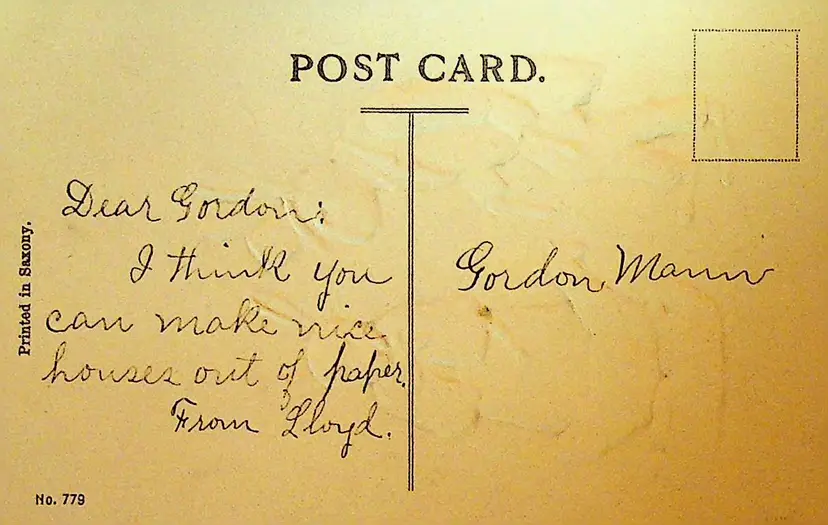 POST CARD.
Printed in Saxony.
Dear Gordon:
I think you
can make nice
houses out of paper.
From Lloyd.
Gordon Mann
No. 779